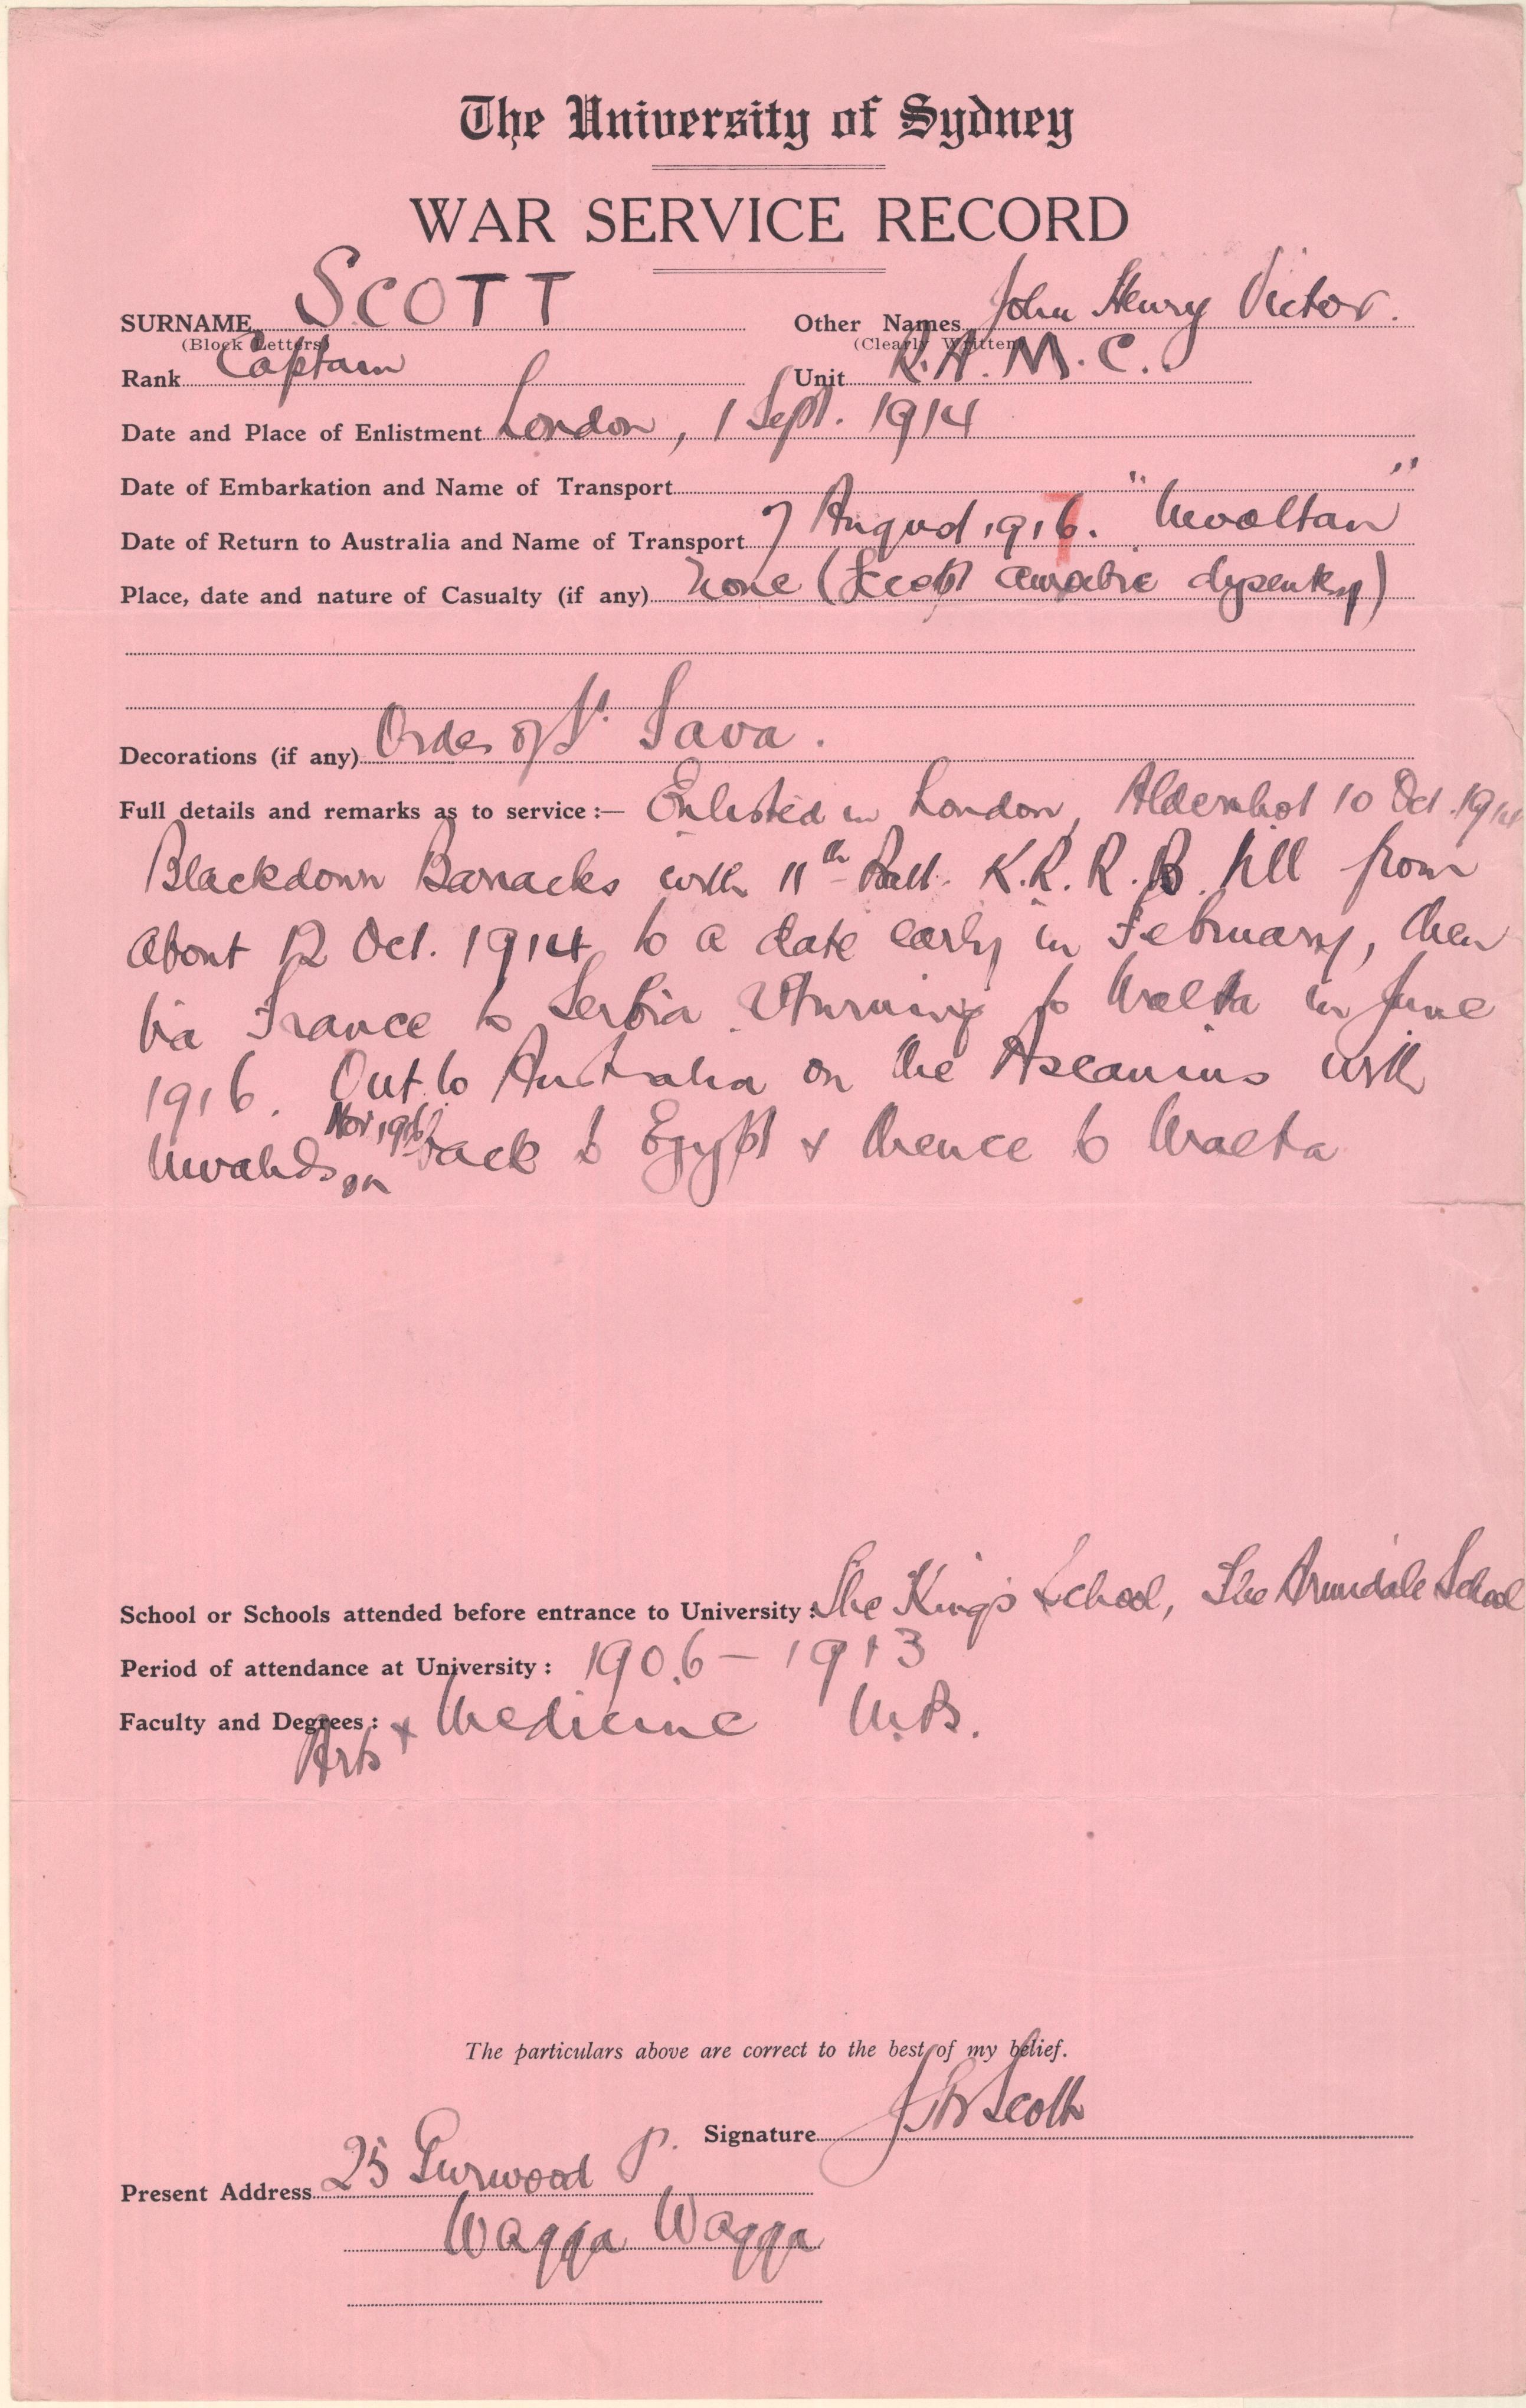 The University of Sydney
WAR SERVICE RECORD
SURNAME SCOTT Other Names John Henry Victor.
(Block Letters) (Clearly Written)
Rank Captain Unit R.A.M.C.
Date and Place of Enlistment London, 1 Sept. 1914
Date of Embarkation and Name of Transport
Date of Return to Australia and Name of Transport 7 August 1916. 7 "Mooltan"
Place, date and nature of Casualty (if any) None (Except amoebic dysentery)
Decorations (if any) Order of St. Sava.
Full details and remarks as to service:— Enlisted in London, Aldershot 10 Oct. 1914
Blackdown Barracks with 11th Batt. K.R.R. till from
about 12 Oct. 1914 to a date early in February, then
via France to Serbia returning to Malta in June
1916. Out to Australia on the Ascanius with
Nov 1916
Invalids on back to Egypt & thence to Malta
School or Schools attended before entrance to University: The King's School, The Armidale School
Period of attendance at University: 1906 – 1913
Faculty and Degrees: Arts & Medicine M.B.
The particulars above are correct to the best of my belief.
Signature JHVScott
Present Address 25 Gurwood St.
Wagga Wagga